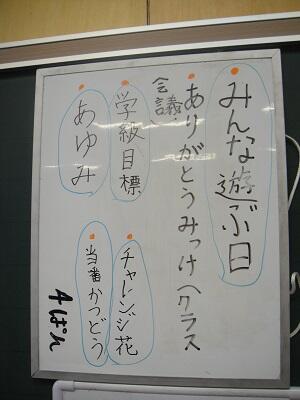 みんな遊ぶ日
ありがとうみっけ(クラス
会議)
学級目標
チャレンジ花
あゆみ
当番かつどう
4ぱん